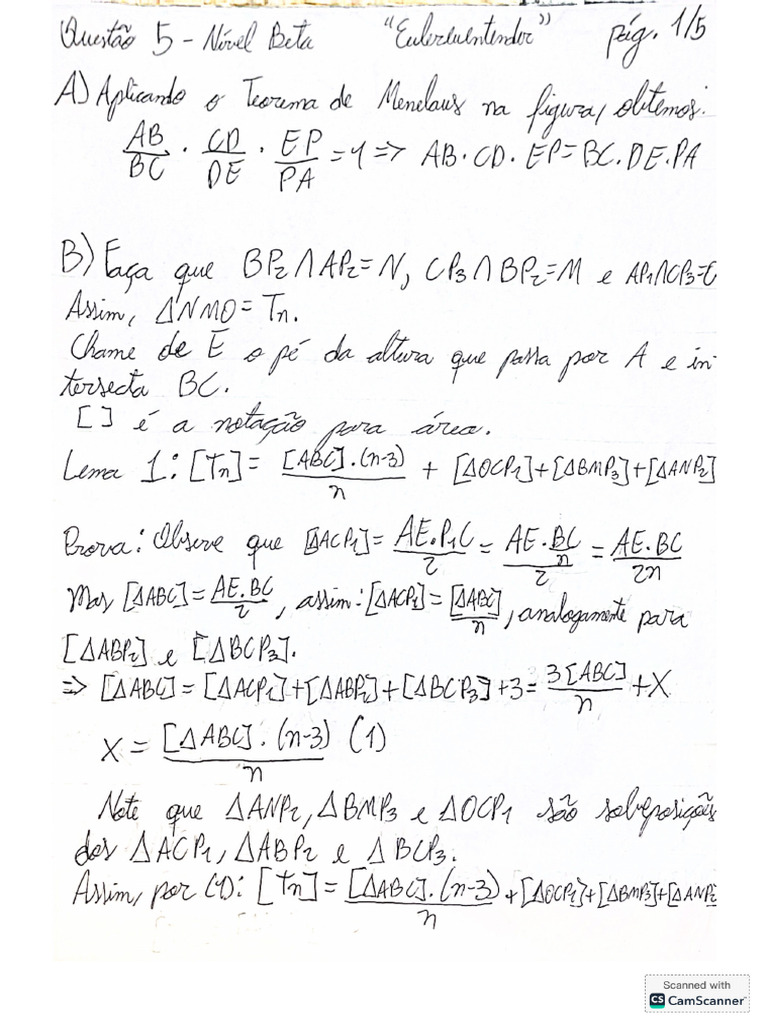 Questão 5 - Nível Beta "Eulercuentender" pág. 1/5
A) Aplicando o Teorema de Menelaus na figura, obtemos:
AB/BC · CD/DE · EP/PA = 1 => AB·CD·EP=BC·DE·PA
B) Faça que BP₂∩AP₂=N, CP₃∩BP₂=M e AP₁∩CP₃=O
Assim, ΔNMO = Tn.
Chame de E o pé da altura que passa por A e in-
tersecta BC.
[ ] é a notação para área.
Lema 1: [Tn] = [ABC]·(n-3)/n + [ΔOCP₁]+[ΔBMP₃]+[ΔANP₂]
Prova: Observe que [ΔACP₁] = AE·P₁C/2 = AE·BC/n/2 = AE·BC/2n
Mas [ΔABC] = AE·BC/2, assim: [ΔACP₁] = [ΔABC]/n, analogamente para
[ΔABP₂] e [ΔBCP₃].
=> [ΔABC] = [ΔACP₁]+[ΔABP₂]+[ΔBCP₃]+3 = 3[ABC]/n + X
X = [ΔABC]·(n-3)/n (1)
Note que ΔANP₂, ΔBMP₃ e ΔOCP₁ são sobreposições
dos ΔACP₁, ΔABP₂ e ΔBCP₃.
Assim, por (1): [Tn] = [ΔABC]·(n-3)/n + [ΔOCP₁]+[ΔBMP₃]+[ΔANP₂
Scanned with
CS CamScanner